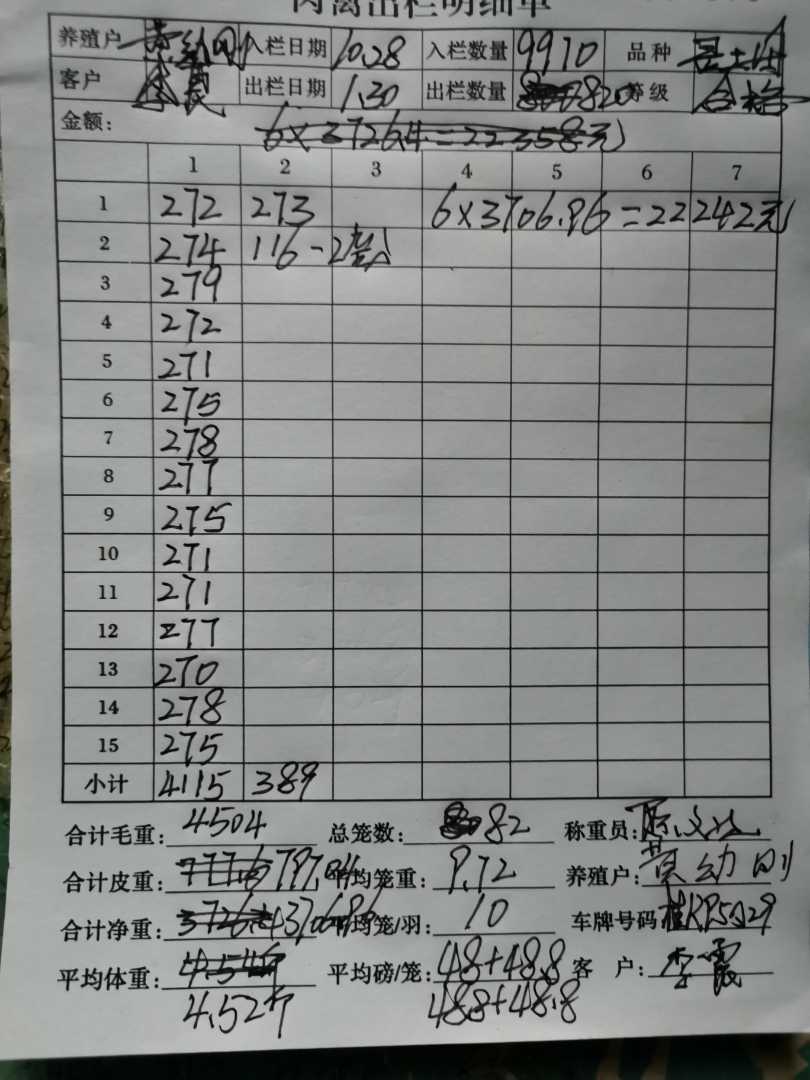 肉禽出栏明细单
养殖户 黄幼刚 入栏日期 10.28 入栏数量 9910 品种 土
客户 李震 出栏日期 1.30 出栏数量 820 等级 合格
金额: 6×3726.4=22358元
1 2 3 4 5 6 7
1 272 273 6×3706.96=22242元
2 274 116-2
3 279
4 272
5 271
6 275
7 278
8 277
9 275
10 271
11 271
12 277
13 270
14 278
15 275
小计 4115 389
合计毛重: 4504 总笼数: 82 称重员:
合计皮重: 797.04 平均笼重: 9.72 养殖户: 黄幼刚
合计净重: 3726.4 3706.96 平均笼/羽: 10 车牌号码
平均体重: 4.54斤 平均磅/笼: 48+48.8 客 户: 李震
4.52斤 48.8+48.8